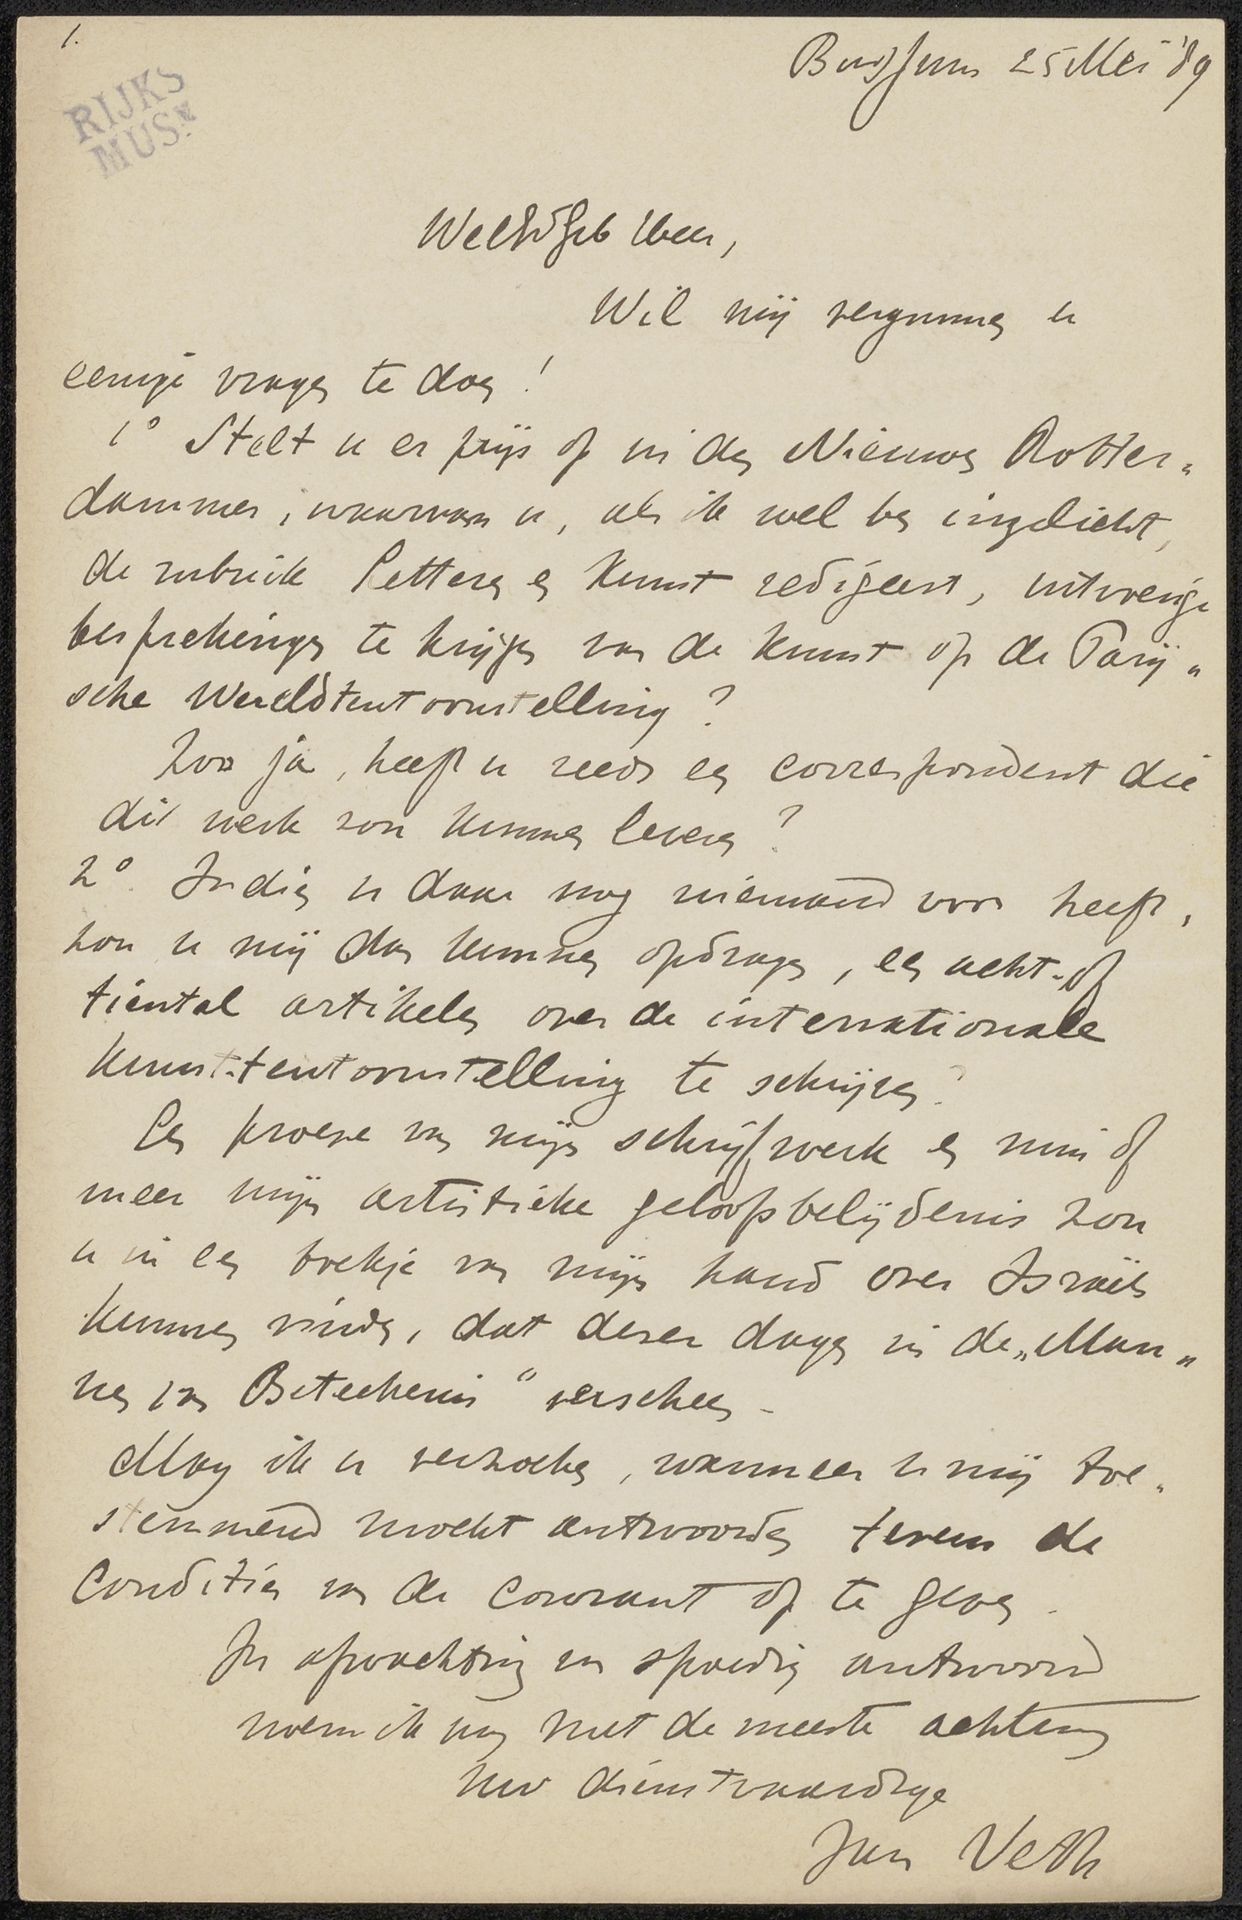 1.
Bussum 25 Mei '89
RIJKS
MUSM
WelEdGeb Heer,
Wil mij vergunnen u
eenige vragen te doen!
1° Stelt u er prijs op in den Nieuwen Rotter-
dammer, waarvan u, als ik wel ben ingelicht,
de rubriek Letteren en Kunst redigeert, uitvoerige
besprekingen te krijgen van de kunst op de Parij-
sche Wereldtentoonstelling?
Zoo ja, heeft u reeds een correspondent die
dit werk zou kunnen leveren?
2° Indien u daar nog niemand voor heeft,
zou u mij dan kunnen opdragen, een acht- of
tiental artikelen over de internationale
kunst-tentoonstelling te schrijven?
Een proeve van mijn schrijfwerk en min of
meer mijn artistieke geloofsbelijdenis zou
u in een boekje van mijn hand over Israëls
kunnen vinden, dat dezer dagen in de „Man-
nen van Beteekenis" verscheen.
Mag ik u verzoeken, wanneer u mij toe-
stemmend mocht antwoorden tevens de
Condities van de courant op te geven.
In afwachting van spoedig antwoord
noem ik mij met de meeste achting
Uw dienstvaardige
Jan Veth